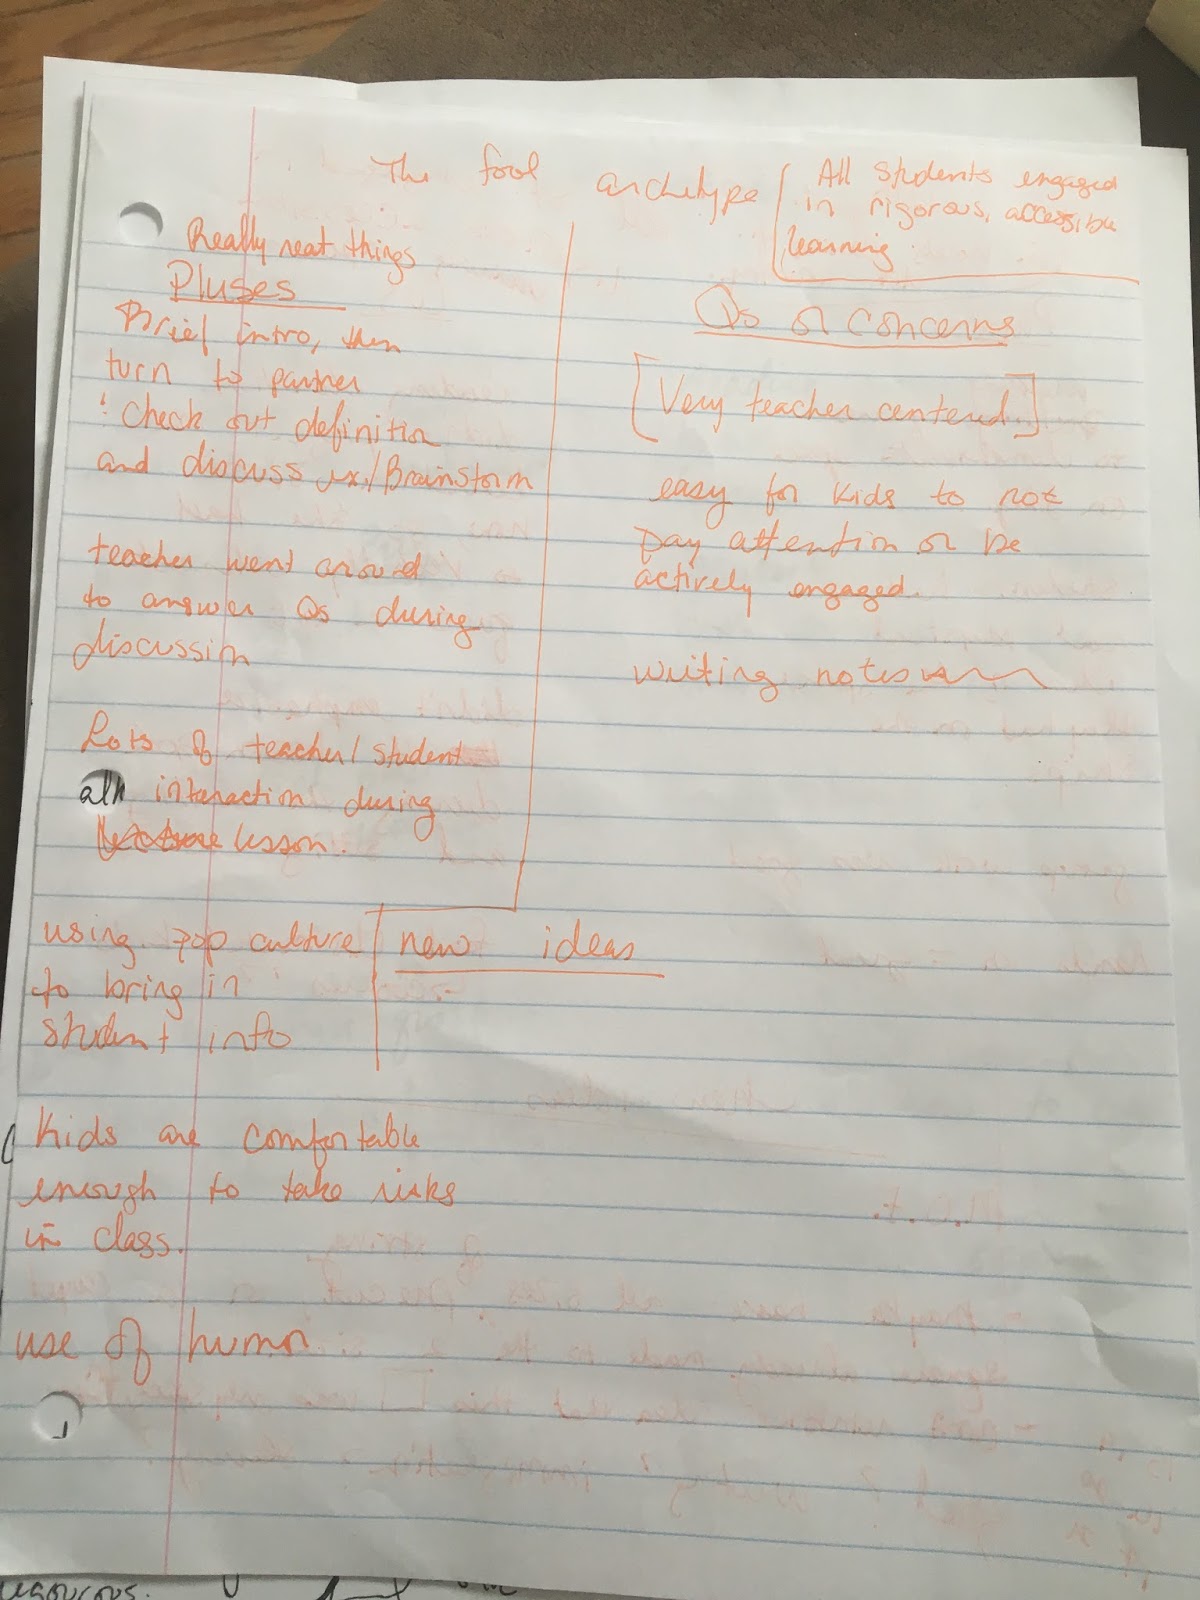 The fool archetype
All students engaged
in rigorous, accessible
learning
Really neat things
Pluses
Brief intro, then
turn to partner
! Check out definition
and discuss ex./Brainstorm
teacher went around
to answer Qs during
discussion
Lots of teacher/student
interaction during
lesson.
using pop culture
to bring in
student info
Kids are comfortable
enough to take risks
in class.
use of humor
Qs or Concerns
[Very teacher centered]
easy for kids to not
pay attention or be
actively engaged.
writing notes
new ideas
rigorous.